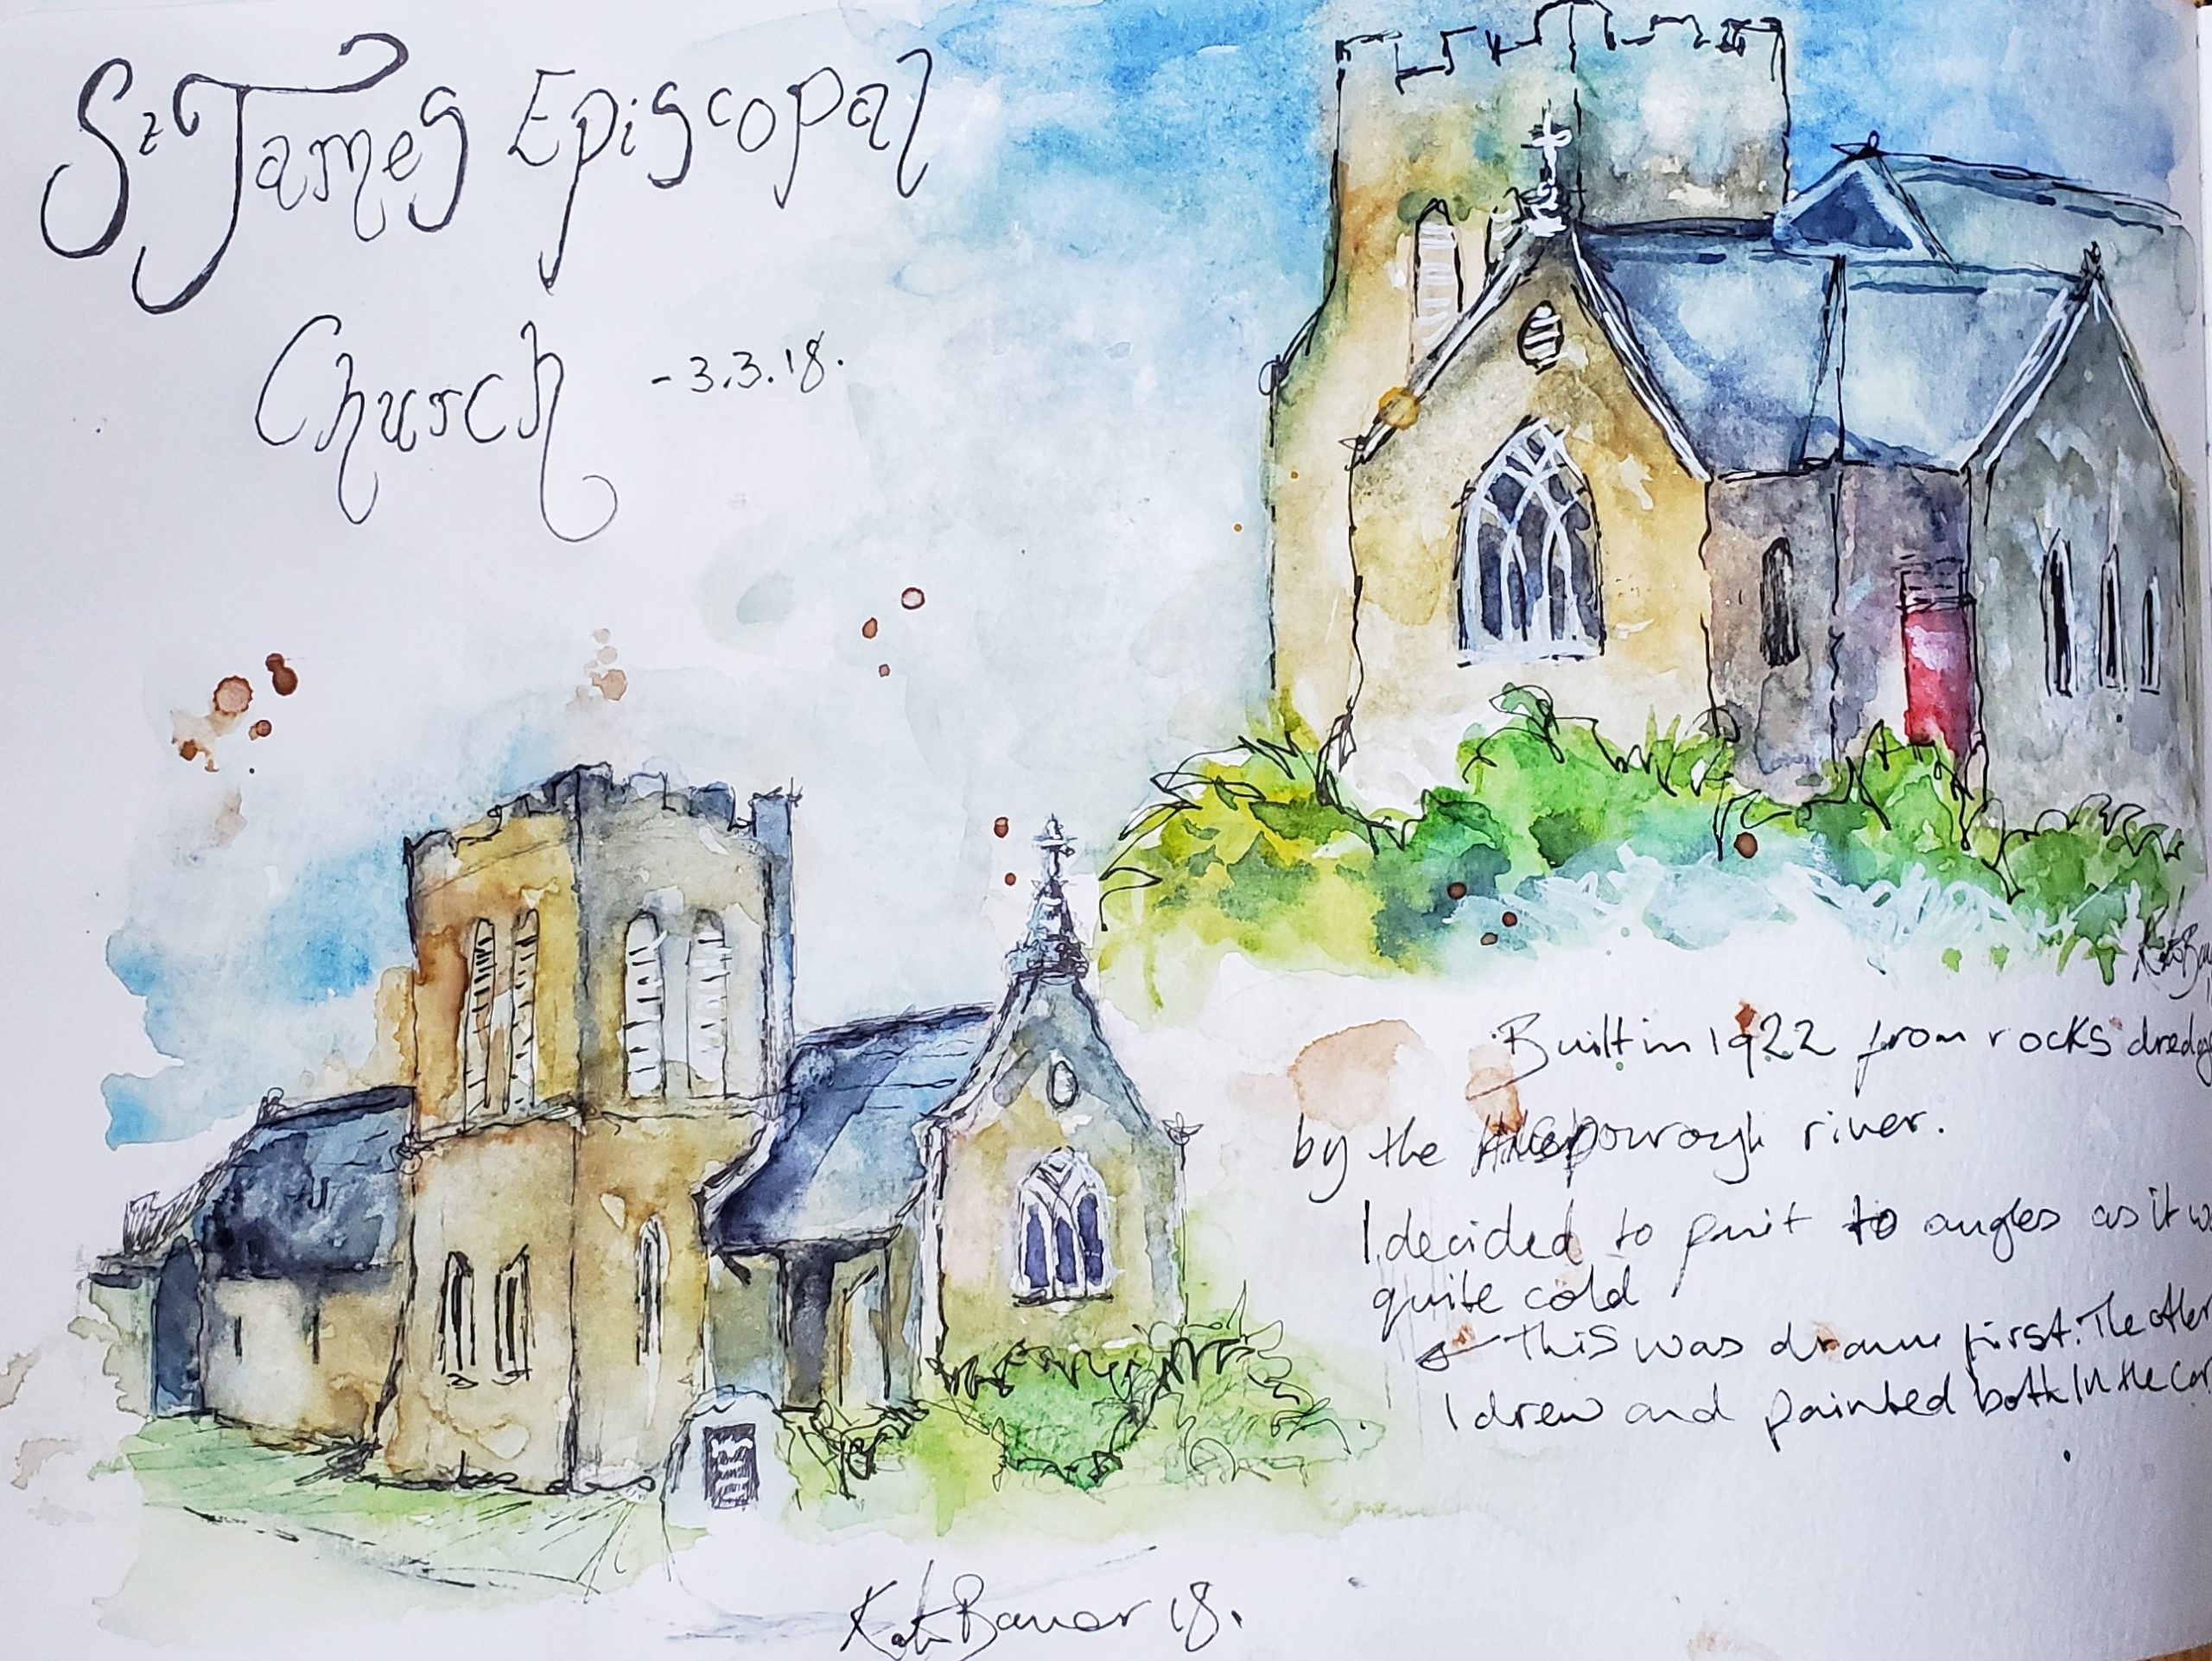 St James Episcopal
Church - 3.3.18.
Built in 1922 from rocks dredg
by the river.
I decided to pait to angles as it w
quite cold
This was drawn first. The other
I drew and painted both In the car
Kate Bauer 18.